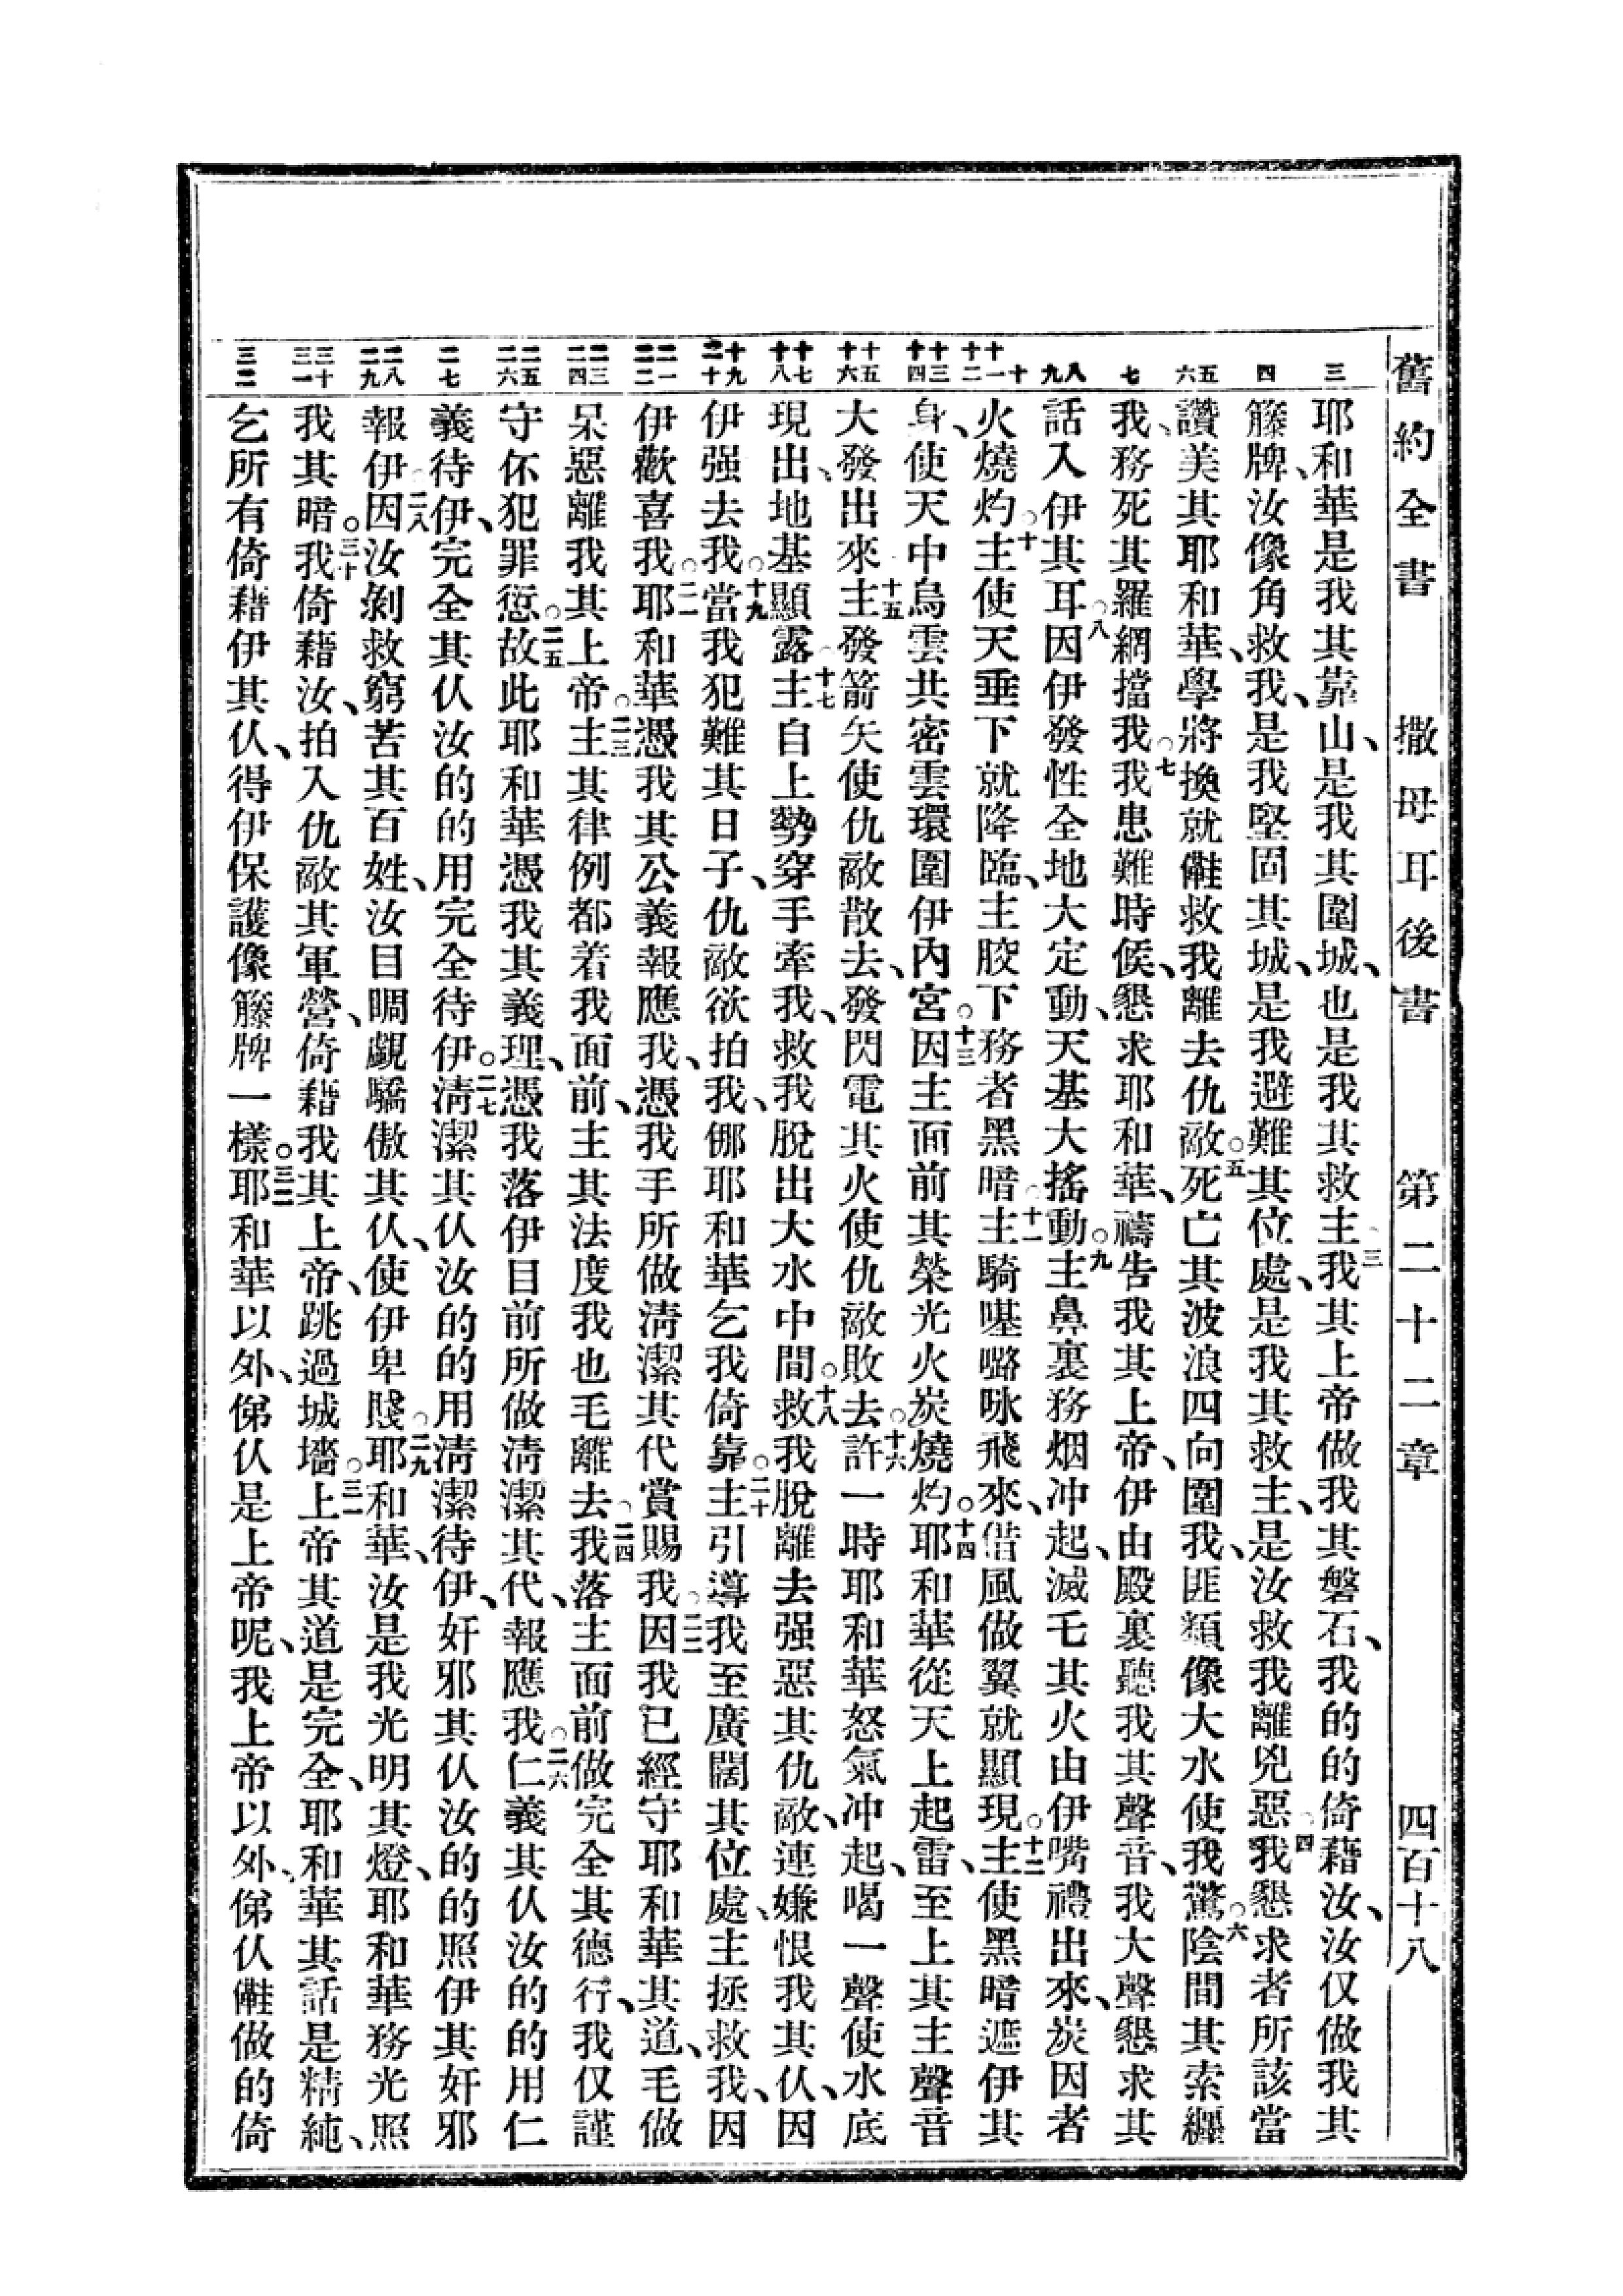 舊約全書 撒母耳後書 第二十二章 四百十八
三 四 五 六 七 八 九 十 十一 十二 十三 十四 十五 十六 十七 十八 十九 二十 二一 二二 二三 二四 二五 二六 二七 二八 二九 三十 三一 三二
耶和華是我其靠山、是我其圍城、也是我其救主○三我其上帝做我其磐石、我的的倚藉汝、汝仅做我其
籐牌、汝像角救我、是我堅固其城、是我避難其位處、是我其救主、是汝救我離兇惡○四我懇求者所該當
讚美其耶和華、學將換就儺救我離去仇敵○五死亡其波浪四向圍我、匪類像大水使我驚○六陰間其索纏
我、務死其羅網擋我○七我患難時候、懇求耶和華、禱告我其上帝、伊由殿裏聽我其聲音、我大聲懇求其
話入伊其耳○八因伊發性全地大定動、天基大搖動○九主鼻裏務烟冲起、滅乇其火由伊嘴禮出來、炭因者
火燒灼○十主使天垂下就降臨、主腔下務者黑暗○十一主騎噻嚕咏飛來、借風做翼就顯現○十二主使黑暗遮伊其
身、使天中烏雲共密雲環圍伊內宮○十三因主面前其榮光火炭燒灼○十四耶和華從天上起雷、至上其主聲音
大發出來○十五主發箭矢使仇敵散去、發閃電其火使仇敵敗去○十六許一時耶和華怒氣冲起、喝一聲使水底
現出、地基顯露○十七主自上勢穿手牽我、救我脫出大水中間○十八救我脫離去强惡其仇敵、連嫌恨我其仈、因
伊强去我○十九當我犯難其日子、仇敵欲拍我、㑚耶和華乞我倚靠○二十主引導我至廣闊其位處、主拯救我、因
伊歡喜我○二一耶和華憑我其公義報應我、憑我手所做淸潔其代賞賜我○二二因我已經守耶和華其道、毛做
呆惡離我其上帝○二三主其律例都着我面前、主其法度我也毛離去○二四我落主面前做完全其德行、我仅謹
守伓犯罪愆○二五故此耶和華憑我其義理、憑我落伊目前所做淸潔其代、報應我○二六仁義其仈汝的的用仁
義待伊、完全其仈汝的的用完全待伊○二七淸潔其仈汝的的用淸潔待伊、奸邪其仈汝的的照伊其奸邪
報伊○二八因汝剝救窮苦其百姓、汝目瞯覷驕傲其仈、使伊卑賤○二九耶和華、汝是我光明其燈、耶和華務光照
我其暗○三十我倚藉汝、拍入仇敵其軍營、倚藉我其上帝、跳過城墻○三一上帝其道是完全、耶和華其話是精純、
乞所有倚藉伊其仈、得伊保護像籐牌一樣○三二耶和華以外、俤仈是上帝呢、我上帝以外、俤仈儺做的倚